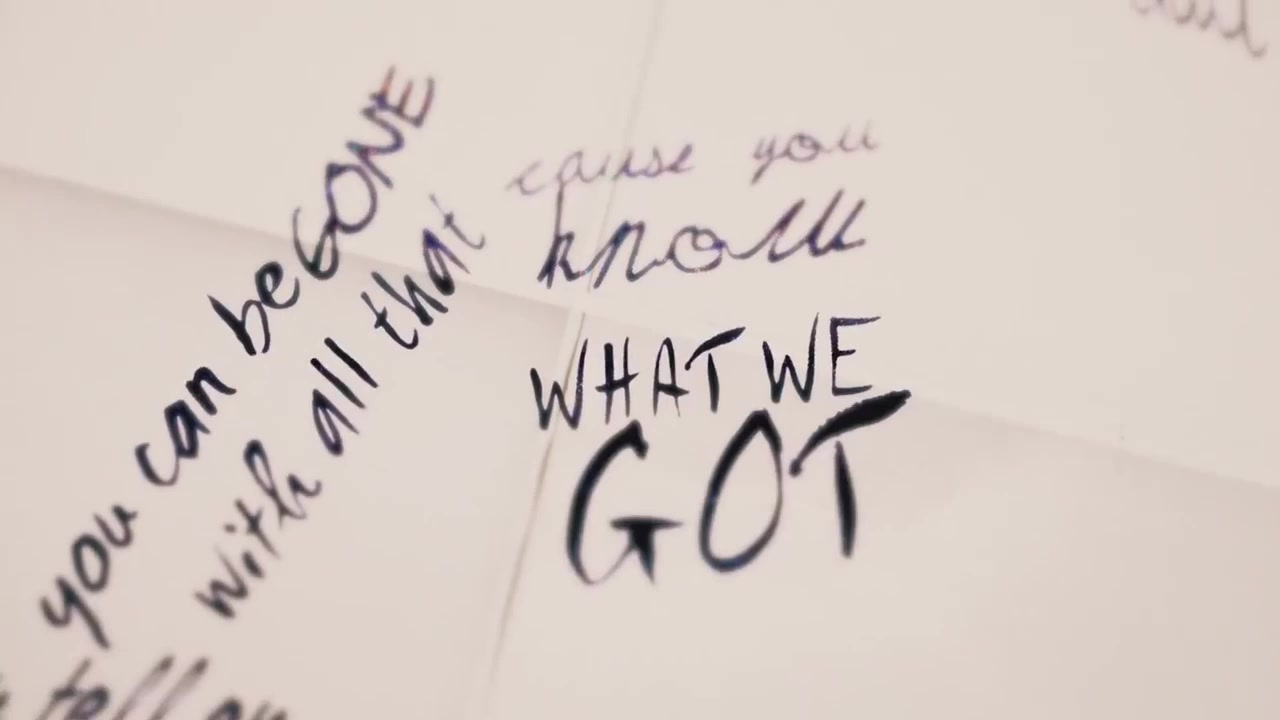 you can be GONE
with all that
cause you
know
WHAT WE
GOT
tell